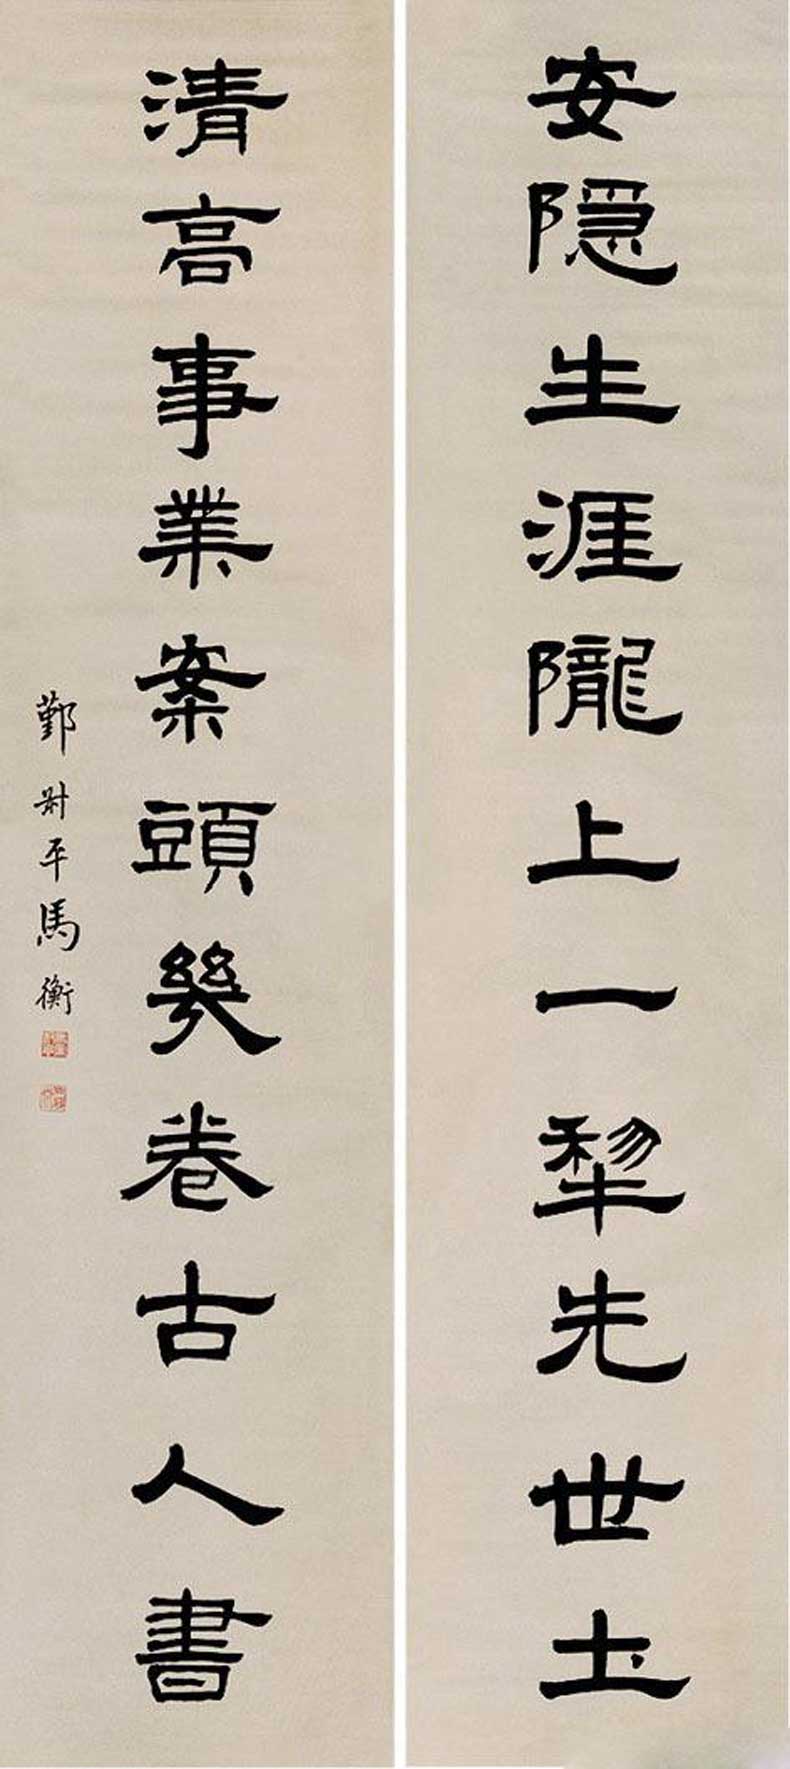 安隱生涯隴上一犂先世土
清高事業案頭幾卷古人書
鄞 尗平馬衡